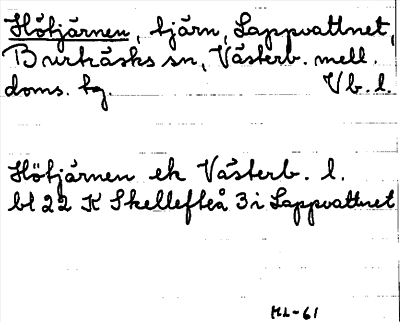 Hötjärnen, tjärn, Lappvattnet,
Burträsks sn, Västerb. mell.
doms. hg. Vb. l.
Hötjärnen ek Västerb. l.
bl 22 K Skellefteå 3i Lappvattnet
ML-61